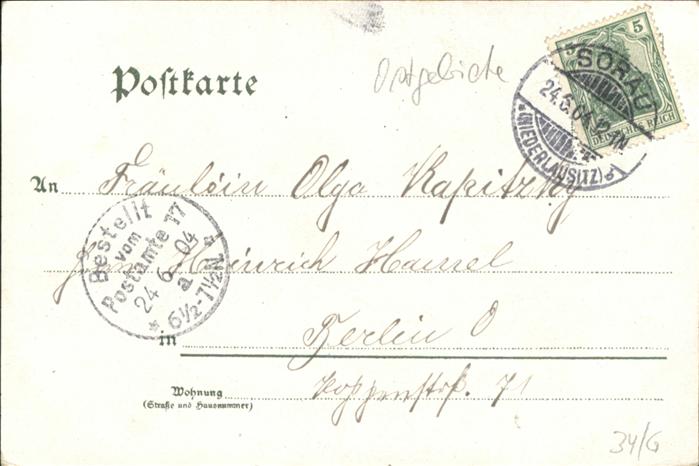 Ostgebiete
Postkarte
5
DEUTSCHES REICH
SORAU
24.6.04.
*(NIEDERLAUSITZ)
An Fräulein Olga Kapitzky
Heinrich Hensel
in Berlin O
Wohnung
(Straße und Hausnummer)
Koppenstr. 71
Bestellt
vom
Postamte 17
24 6 04
a
* 6½-7½N *
34/G